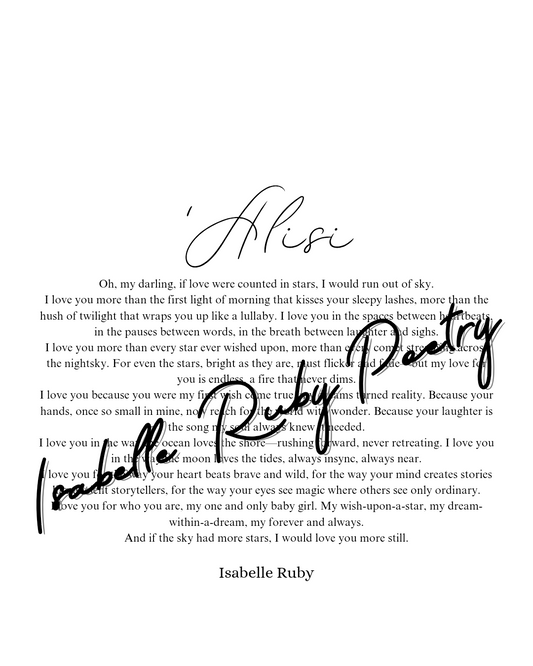 'Alisi
Oh, my darling, if love were counted in stars, I would run out of sky.
I love you more than the first light of morning that kisses your sleepy lashes, more than the
hush of twilight that wraps you up like a lullaby. I love you in the spaces between heartbeats,
in the pauses between words, in the breath between laughter and sighs.
I love you more than every star ever wished upon, more than every comet streaking across
the nightsky. For even the stars, bright as they are, must flicker and fade—but my love for
you is endless, a fire that never dims.
I love you because you were my first wish come true, dreams turned reality. Because your
hands, once so small in mine, now reach for the world with wonder. Because your laughter is
the song my soul always knew needed.
I love you in the way the ocean loves the shore—rushing forward, never retreating. I love you
in the way the moon loves the tides, always insync, always near.
I love you for the way your heart beats brave and wild, for the way your mind creates stories
storytellers, for the way your eyes see magic where others see only ordinary.
I love you for who you are, my one and only baby girl. My wish-upon-a-star, my dream-
within-a-dream, my forever and always.
And if the sky had more stars, I would love you more still.
Isabelle Ruby
Isabelle Ruby Poetry